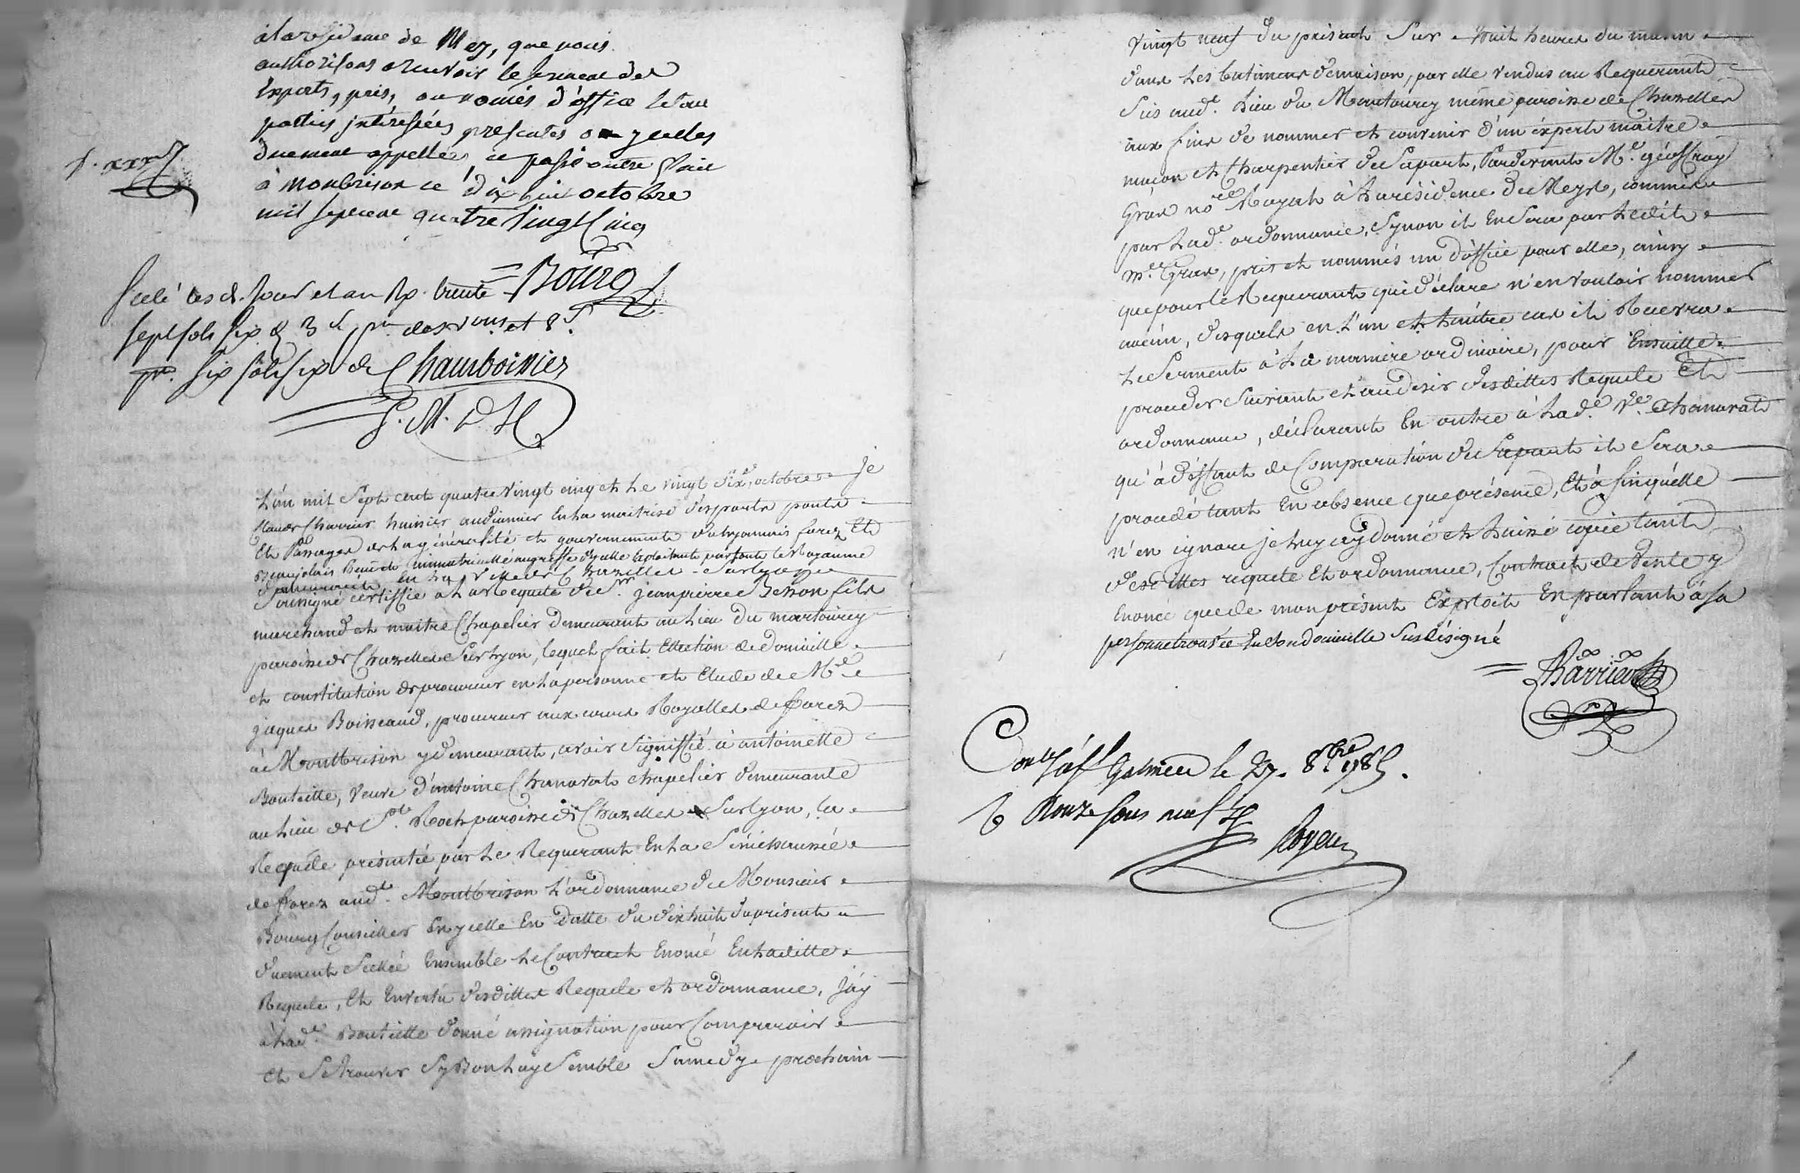 à la residence de Meys, que nous
authorisons a recevoir le serment des
Experts, pris, ou només d'office les
parties intéressées presentes ou ycelles
duement appellés, ce passé outre fait
à monbrison ce dix huit octobre
mil sept cent quatre vingt Cinq
Bourg
Scelé les d. jour et an Rx. trente
sept sols six d.
six sols six d. Chamboissier
L'an mil Sept cent quatre vingt cinq et Le vingt Six, octobre Je
Claude Charrier huissier audiencier En la maitrise des ports ponts
Et Passages de la généralité et gouvernement du Lyonnais forez Et
Beaujolais immatriculé au greffe d'ycelle Exploitant par tout le Royaume
demeurant en la Ville de Chazelles Sur lyon
Soussigné certiffie à La Requete de Sr. jean pierre fils
marchand et maitre Chapelier demeurant au lieu du montourcy
paroisse de Chazelles Sur lyon, lequel fait Election de domicille
et constitution de procureur en la personne et Etude de Me.
jaques Boisseaud, procureur aux cours Royalles de forez
à Montbrison y demeurant, avoir Signiffié à antoinette
Bouteille, veuve d'antoine Chanavat chapelier demeurante
au Lieu de St. Roch paroisse de Chazelles Sur lyon, la
Requête présentée par Le Requerant En La Sénéchaussée
de forez aud. Montbrison L'ordonnance de Monsieur
Bourg Conseiller En ycelle En datte du dixhuit du présent
duement Scellée Ensemble Le Contract Enoncé En laditte
Requete, Et En vertu desdittes Requete et ordonnance, J'ay
à Lade. Bouteille donné assignation pour Comparoir
Et Se trouver Sy Bon Luy Semble Samedy prochain
vingt neuf du présent Sur huit heures du matin
dans Les batiments de maison, par elle vendus au Requerant
Sis aud. Lieu du Montourcy même paroisse de Chazelles
aux fins de nommer et convenir d'un expert maitre
maçon et Charpentier de Sa part, Pardevant Me. géoffray
Gras nore. Royal à La résidence de Meys, commis
par Lade. ordonnance, Synon il En Sera par Ledit
me. Gras, pris et nommés un d'office pour elle, ainsy
que pour le Requerant qui déclare n'en vouloir nommer
aucun, desquels en L'un et L'autre cas il Recevra
Le Serment à La manière ordinaire, pour Ensuitte
proceder Suivant et au desir desdittes Requete Et
ordonnance, déclarant En outre à Lade. Ve. Chanavat
qu'à déffaut de Comparution de Sa part il Sera
procédé tant En absence que présence, Et à fin qu'elle
n'en ignore je Luy ay donné et Laissé copie tant
desdittes requete Et ordonnance, Contract de Vente y
Enoncé que de mon présent Exploit En parlant à Sa
personne trouvée En Son domicille Susdésigné
Charrier
Conlé à St Galmier le 27. 8bre 1785.
R Quinze sous neuf d
Royer